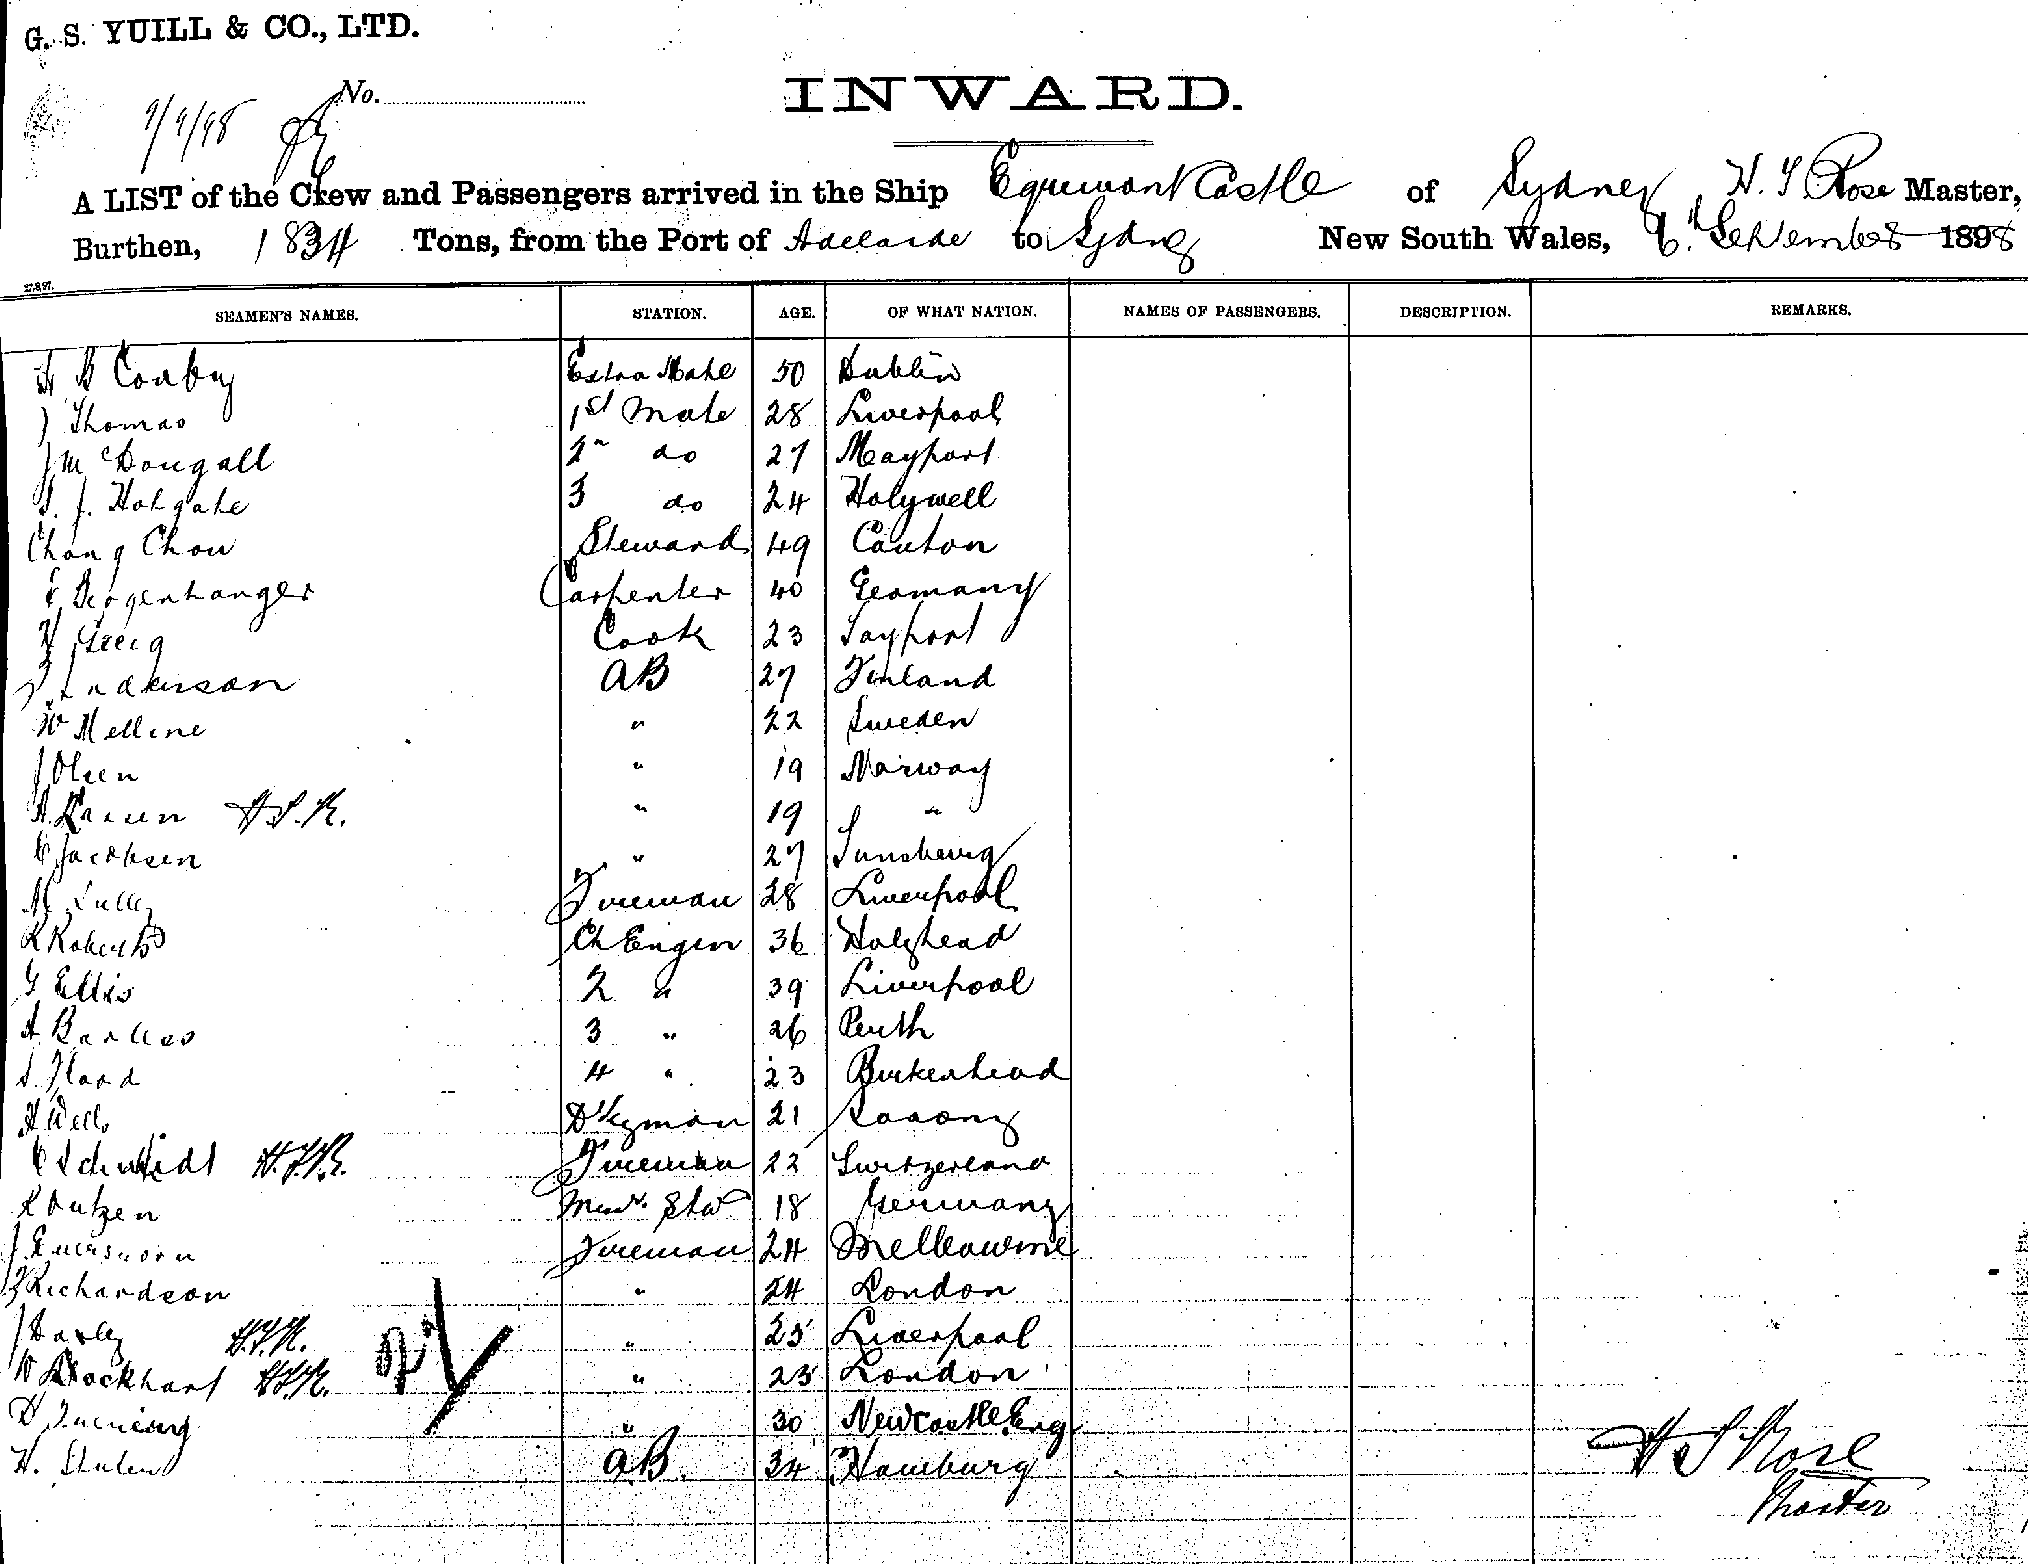 G. S. YUILL & CO., LTD.
No.
INWARD.
9/9/98
A LIST of the Crew and Passengers arrived in the Ship Egremont Castle of Sydney, H. S Rose Master,
Burthen, 1834 Tons, from the Port of Adelaide to Sydney New South Wales, 6th September 1898
27.8.97.
SEAMEN'S NAMES. STATION. AGE. OF WHAT NATION. NAMES OF PASSENGERS. DESCRIPTION. REMARKS.
B Conby Extra Mate 50 Dublin
J Thomas 1st Mate 28 Liverpool
J McDougall 2n do 27 Mayport
J. Holgate 3 do 24 Holywell
Chong Chow Steward 49 Canton
Carpenter 40 Germany
H Greig Cook 23 Tayport
Anderson AB 27 Finland
W Melline " 22 Sweden
J Olsen " 19 Norway
A. Larsen H.S.R. " 19 "
C Jacobsen " 27
M Fireman 28 Liverpool
R Roberts Ch Engin 36 Holyhead
G Ellis 2 " 39 Liverpool
A 3 " 26 Perth
S. Flood 4 " 23 Birkenhead
A Wells D'kyman 21
C Schmidt H.S.R. Fireman 22 Switzerland
Stw 18 Germany
J Fireman 24 Melbourne
Richardson " 24 London
J Darley H.S.R. " 25 Liverpool
W Lockhart H.S.R. " 25 London
" 30 Newcastle Eng
H. AB. 34 Hamburg
H S Rose
Master